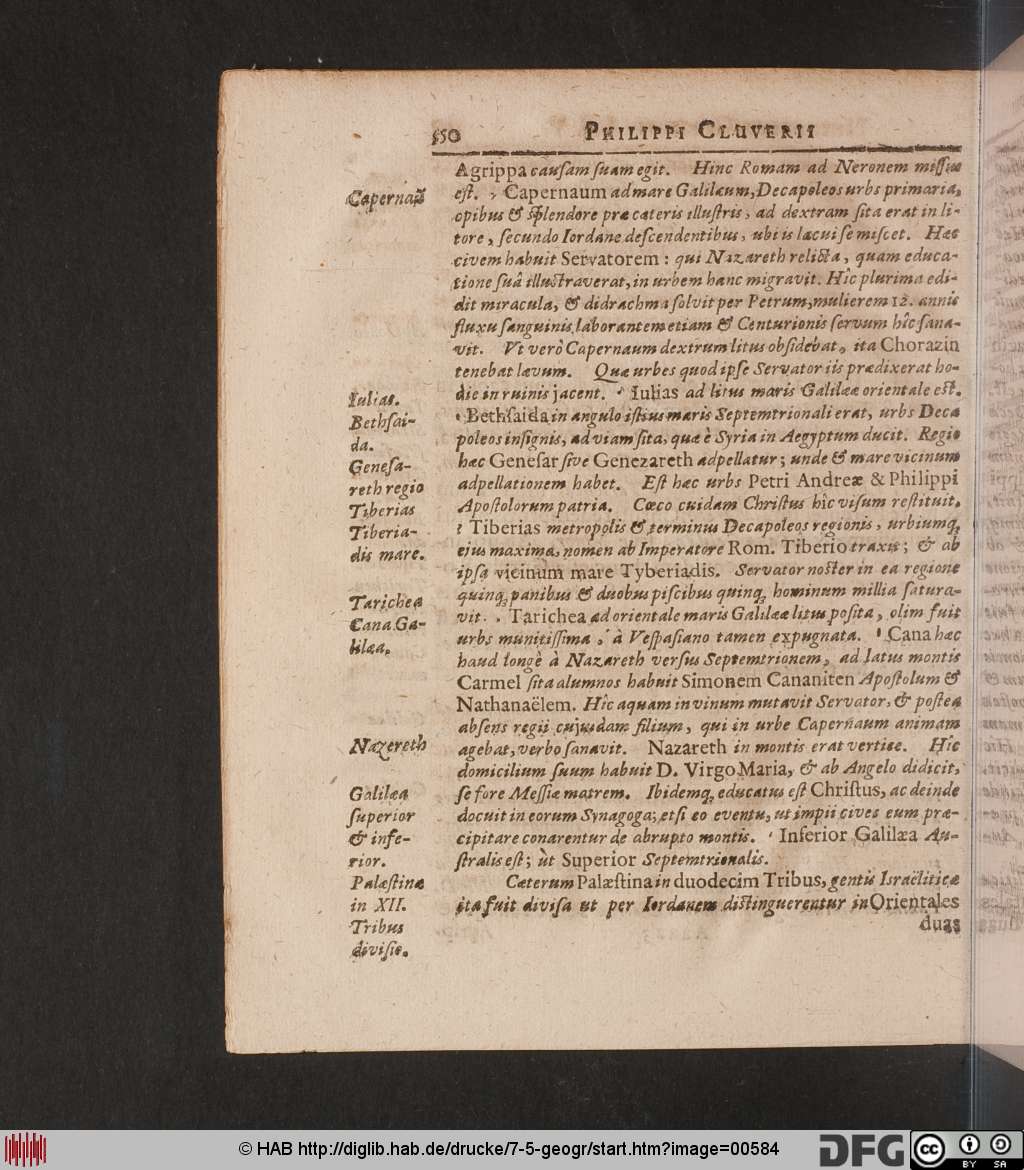 550 PHILIPPI CLUVERII
Agrippa cauſam ſuam egit. Hinc Romam ad Neronem miſſus
Capernaũ
eſt. Capernaum ad mare Galilæum, Decapoleos urbs primaria,
opibus & ſplendore præ cateris illuſtris, ad dextram ſita erat in li-
tore, ſecundo Iordane deſcendentibus, ubi is lacui ſe miſcet. Hæc
civem habuit Servatorem: qui Nazareth relicta, quam educa-
tione ſuâ illuſtraverat, in urbem hanc migravit. Hîc plurima edi-
dit miracula, & didrachma ſolvit per Petrum, mulierem 12. annis
fluxu ſanguinis laborantem etiam & Centurionis ſervum hîc ſana-
vit. Vt verò Capernaum dextrum litus obſidebat, ita Chorazin
tenebat lævum. Quæ urbes quod ipſe Servator iis prædixerat ho-
die in ruinis jacent. Iulias ad litus maris Galilææ orientale eſt.
Iulias.
Bethſai-
da.
Bethſaida in angulo iſtius maris Septemtrionali erat, urbs Deca
poleos inſignis, ad viam ſita, quæ è Syria in Aegyptum ducit. Regio
Geneſa-
reth regio
hæc Geneſar ſive Genezareth adpellatur; unde & mare vicinum
adpellationem habet. Eſt hæc urbs Petri Andreæ & Philippi
Apoſtolorum patria. Cœco cuidam Chriſtus hîc viſum reſtituit.
Tiberias
Tiberia-
dis mare.
Tiberias metropolis & terminus Decapoleos regionis, urbiumq;
ejus maxima, nomen ab Imperatore Rom. Tiberio traxit; & ab
ipſa vicinum mare Tyberiadis. Servator noſter in ea regione
quinq; panibus & duobus piſcibus quinq; hominum millia ſatura-
Tarichea
Cana Ga-
lilæa.
vit. Tarichea ad orientale maris Galilææ litus poſita, olim fuit
urbs munitiſſima, à Veſpaſiano tamen expugnata. Cana hæc
haud longè à Nazareth verſus Septemtrionem, ad latus montis
Carmel ſita alumnos habuit Simonem Cananiten Apoſtolum &
Nathanaëlem. Hîc aquam in vinum mutavit Servator, & poſtea
abſens regii cujuſdam filium, qui in urbe Capernaum animam
Nazereth
agebat, verbo ſanavit. Nazareth in montis erat vertice. Hîc
domicilium ſuum habuit D. Virgo Maria, & ab Angelo didicit,
ſe fore Meſſiæ matrem. Ibidemq; educatus eſt Chriſtus, ac deinde
docuit in eorum Synagoga; etſi eo eventu, ut impii cives eum præ-
cipitare conarentur de abrupto montis. Inferior Galilæa Au-
ſtralis eſt; ùt Superior Septemtrionalis.
Galilæa
ſuperior
& infe-
rior.
Palæſtinæ
in XII.
Tribus
diviſio.
Cæterum Palæſtina in duodecim Tribus, gentis Israëliticæ
ita fuit diviſa ut per Iordanem diſtinguerentur in Orientales
duas
© HAB http://diglib.hab.de/drucke/7-5-geogr/start.htm?image=00584
DFG
cc
BY SA